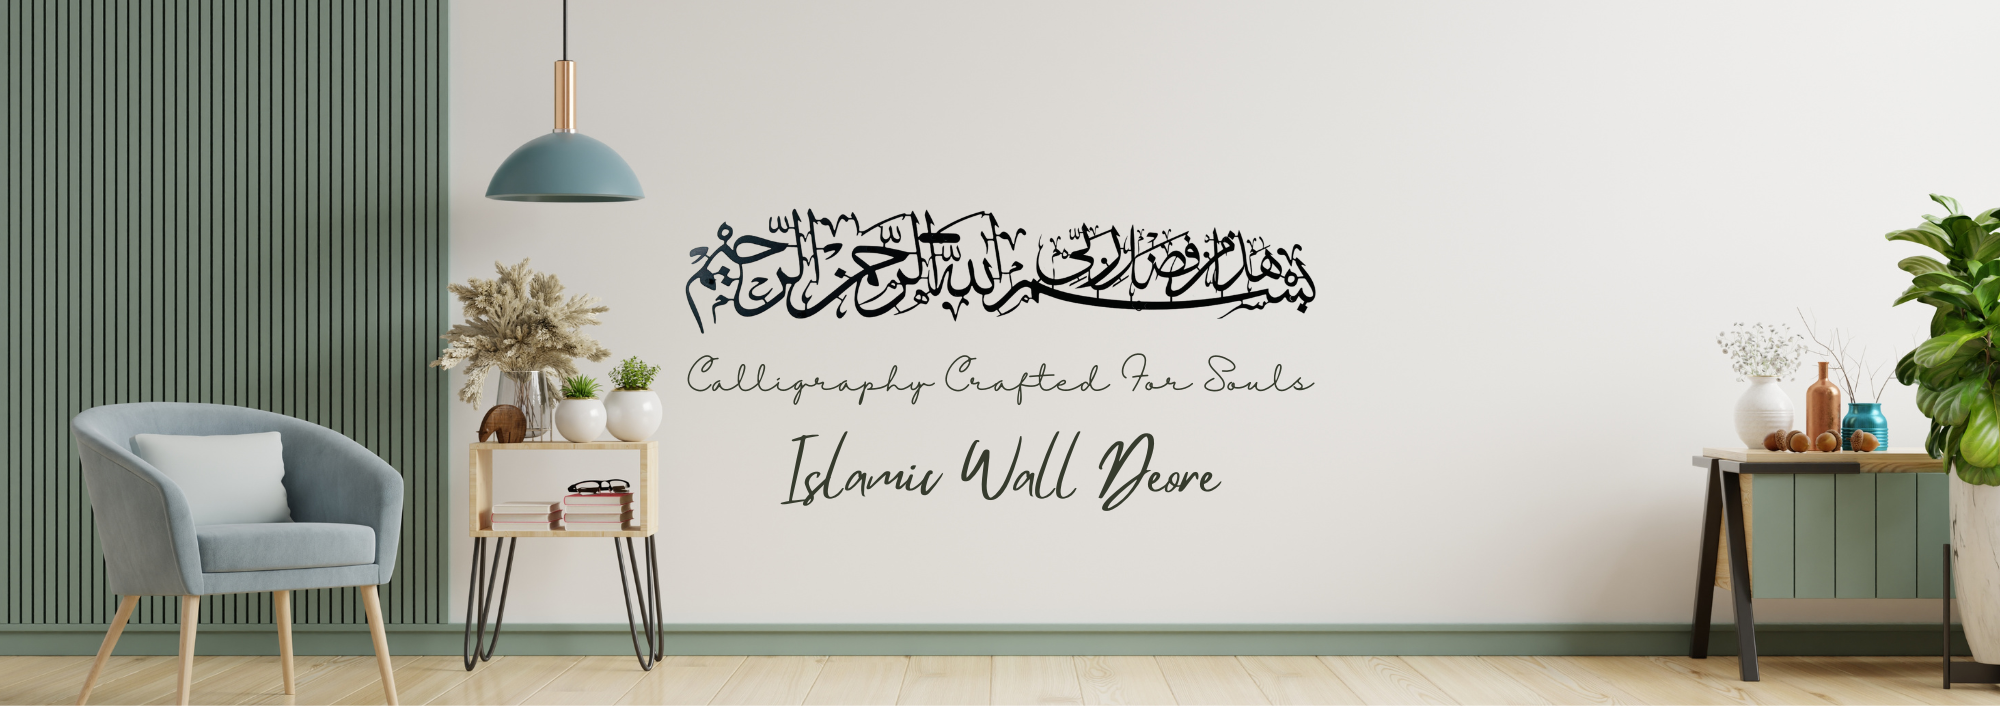 بسم الله الرحمن الرحيم
هذا من فضل ربي
Calligraphy Crafted For Souls
Islamic Wall Deore